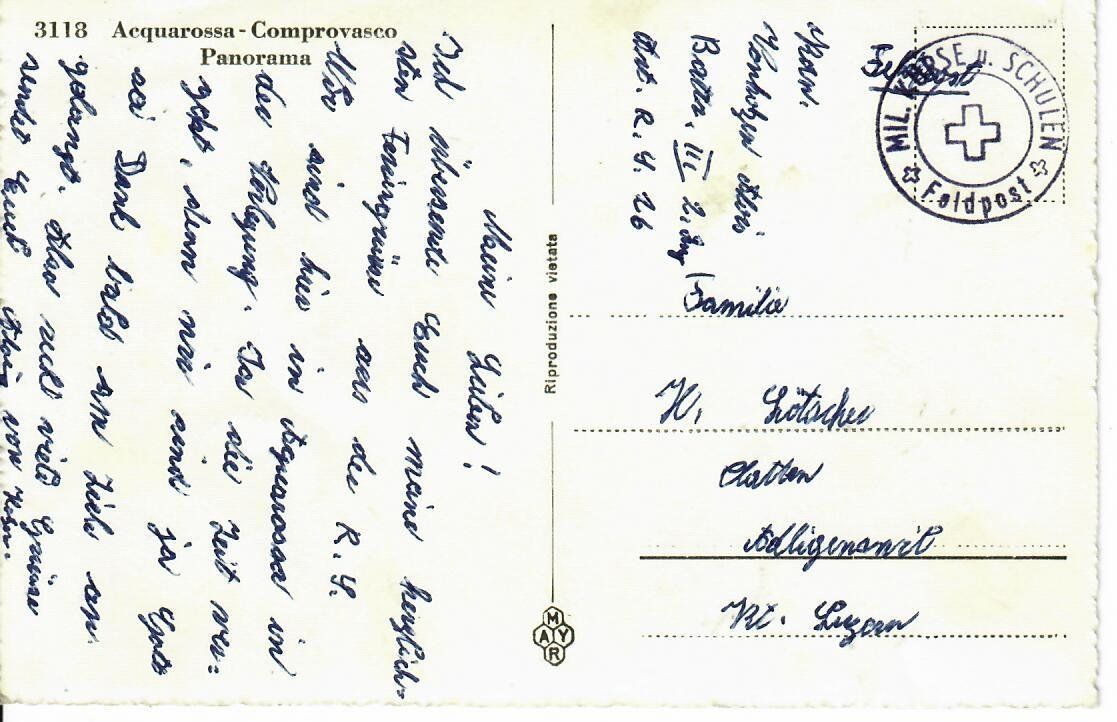 3118 Acquarossa - Comprovasco
Panorama
Meine Lieben!
Ich übersende Euch meine herzlich=
sten Tessingrüsse aus der R. S.
Wir sind hier in Acquarossa in
der Verlegung. Ja die Zeit ver:
geht, denn wir sind ja Gott
sei Dank bald am Ziele an
gelangt. Also recht viele Grüsse
sendet Euch Alois von
Riproduzione vietata
MAYR
Kan.
Vonholzen Alois
Battr. III 2. Zug
Art. R. S. 26
Feldpost
MIL. KURSE u. SCHULEN
Feldpost
Familie
Lötscher
Platten
Adligenswil
Kt. Luzern